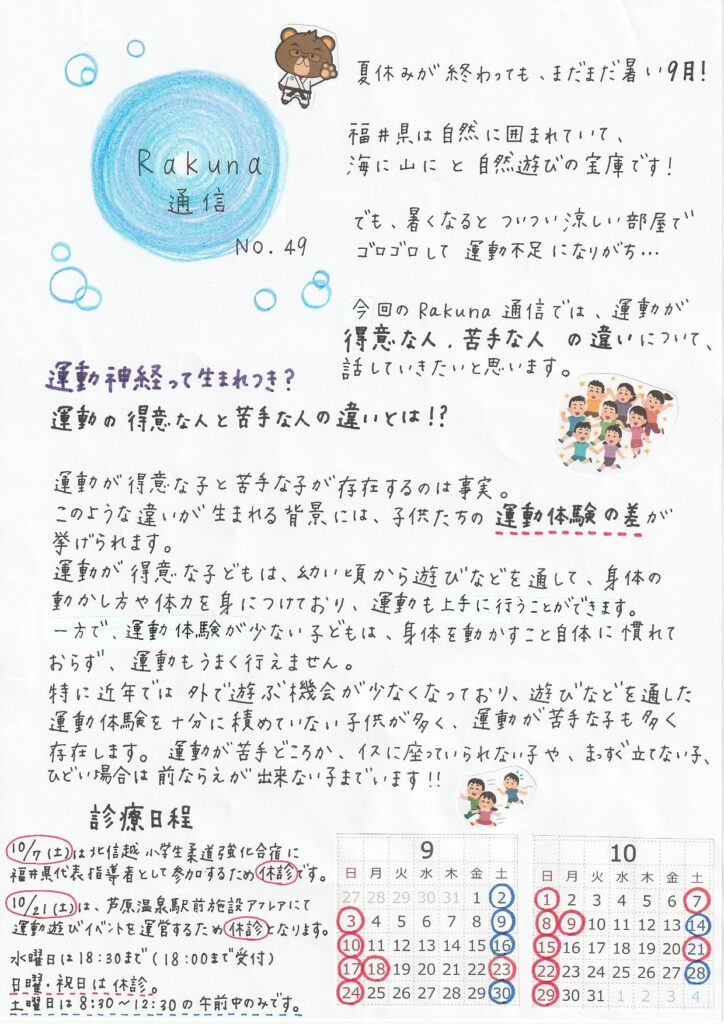 Rakuna
通信
No. 49
夏休みが終わっても、まだまだ暑い9月!
福井県は自然に囲まれていて、
海に山にと自然遊びの宝庫です!
でも、暑くなるとついつい涼しい部屋で
ゴロゴロして運動不足になりがち…
今回のRakuna通信では、運動が
得意な人.苦手な人 の違いについて、
話していきたいと思います。
運動神経って生まれつき?
運動の得意な人と苦手な人の違いとは!?
運動が得意な子と苦手な子が存在するのは事実。
このような違いが生まれる背景には、子供たちの運動体験の差が
挙げられます。
運動が得意な子どもは、幼い頃から遊びなどを通して、身体の
動かし方や体力を身につけており、運動も上手に行うことができます。
一方で、運動体験が少ない子どもは、身体を動かすこと自体に慣れて
おらず、運動もうまく行えません。
特に近年では外で遊ぶ機会が少なくなっており、遊びなどを通した
運動体験を十分に積めていない子供が多く、運動が苦手な子も多く
存在します。運動が苦手どころか、イスに座っていられない子や、まっすぐ立てない子、
ひどい場合は前ならえが出来ない子までいます!!
診療日程
10/7(土)は北信越小学生柔道強化合宿に
福井県代表指導者として参加するため休診です。
10/21(土)は、芦原温泉駅前施設アフレアにて
運動遊びイベントを運営するため休診となります。
水曜日は18:30まで(18:00まで受付)
日曜・祝日は休診。
土曜日は8:30～12:30の午前中のみです。
9
日 月 火 水 木 金 土
27 28 29 30 31 1 2
3 4 5 6 7 8 9
10 11 12 13 14 15 16
17 18 19 20 21 22 23
24 25 26 27 28 29 30
10
日 月 火 水 木 金 土
1 2 3 4 5 6 7
8 9 10 11 12 13 14
15 16 17 18 19 20 21
22 23 24 25 26 27 28
29 30 31 1 2 3 4